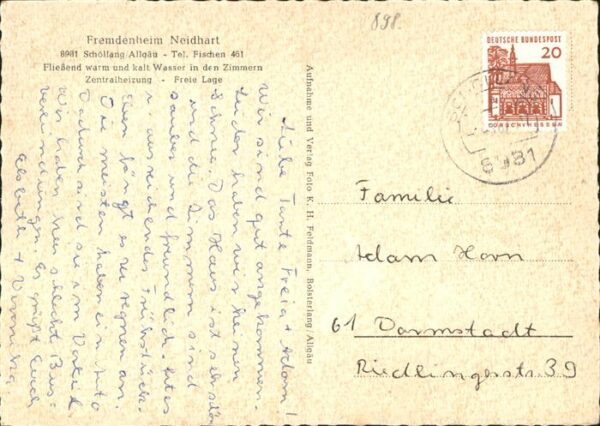 Fremdenheim Neidhart
8981 Schöllang/Allgäu - Tel. Fischen 461
Fließend warm und kalt Wasser in den Zimmern
Zentralheizung - Freie Lage
898.
DEUTSCHE BUNDESPOST
20
LORSCH/HESSEN
8981
Aufnahme und Verlag Foto K. H. Feldmann, Bolsterlang/Allgäu
Liebe Tante Freia + Adam!
Wir sind gut angekommen.
Leider haben wir keinen
Schnee. Das Haus ist sehr schön
und die Zimmern sind
sauber und freundlich. Gutes
u. ausreichendes Frühstück.
Eben fängt es zu regnen an.
Die meisten haben ein Auto
Dadurch sind sie im Vorteil.
Wir haben hier schlecht Bus-
verbindungen. Es grüßt Euch
Elsbeth + Veronika
Familie
Adam Horn
61 Darmstadt
Riedlingerstr. 39